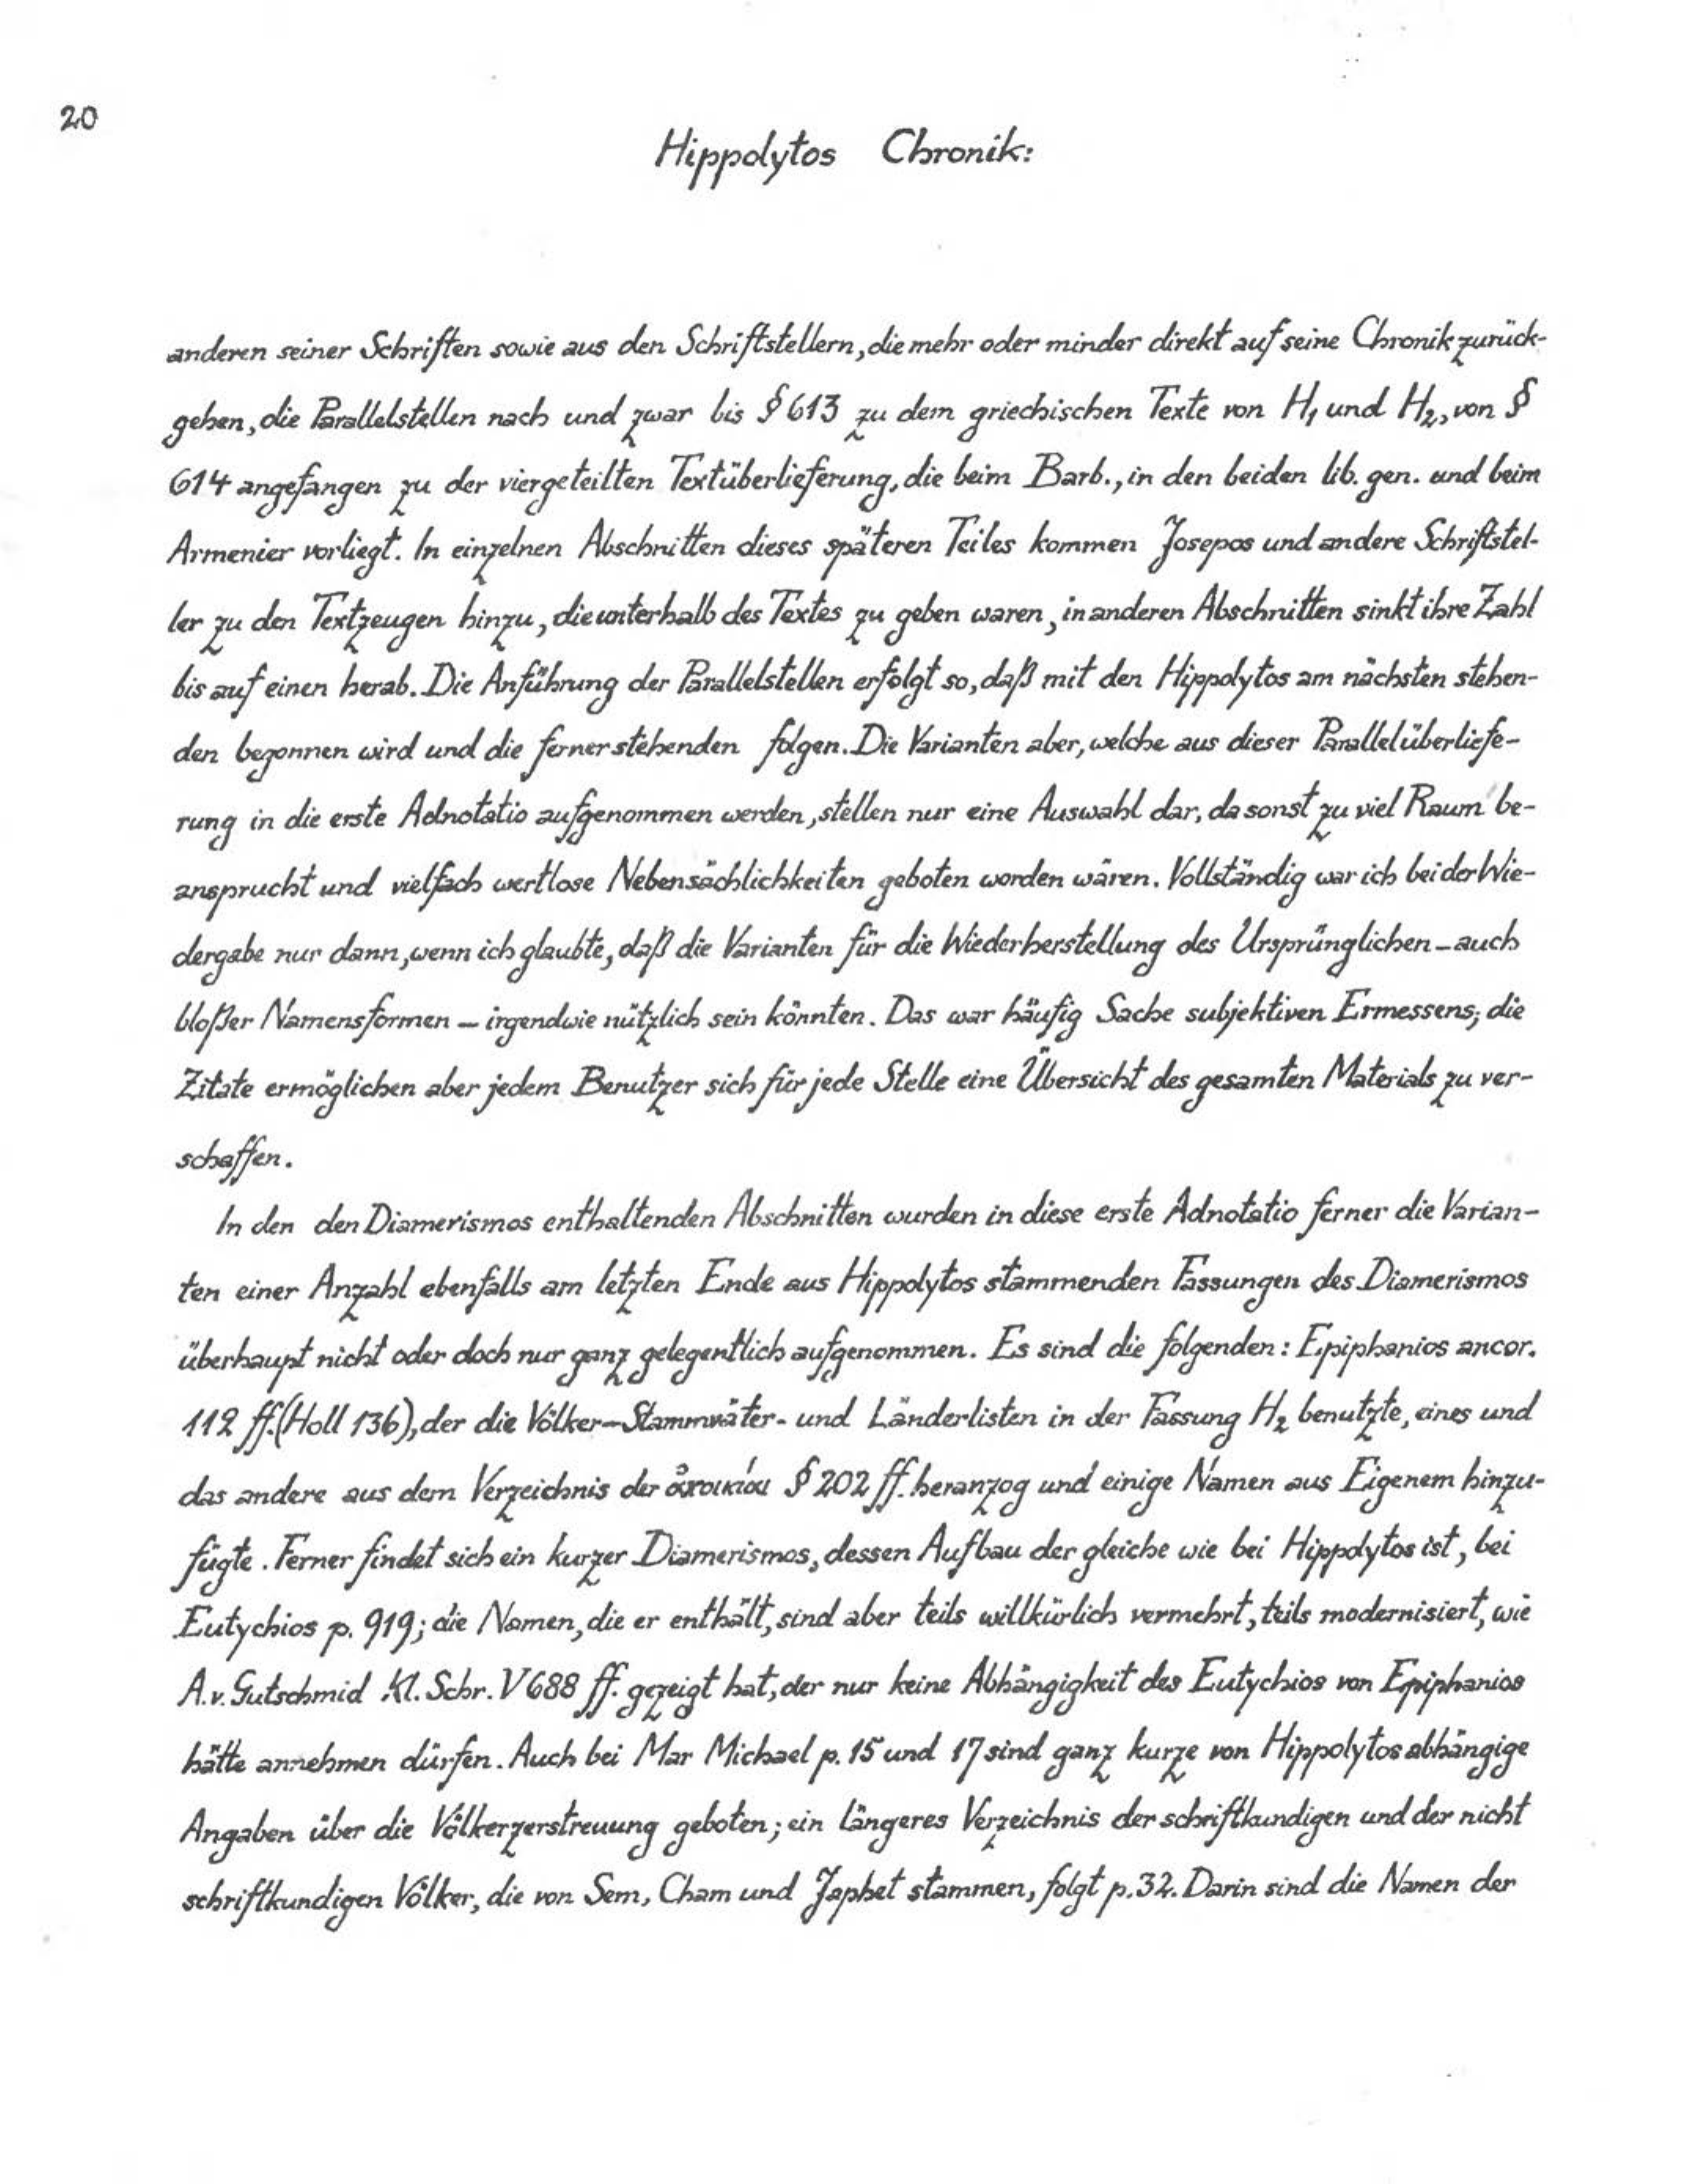 20
Hippolytos Chronik:
anderen seiner Schriften sowie aus den Schriftstellern, die mehr oder minder direkt auf seine Chronik zurück-
gehen, die Parallelstellen nach und zwar bis § 613 zu dem griechischen Texte von H₁ und H₂, von §
614 angefangen zu der viergeteilten Textüberlieferung, die beim Barb., in den beiden lib. gen. und beim
Armenier vorliegt. In einzelnen Abschnitten dieses späteren Teiles kommen Josepos und andere Schriftstel-
ler zu den Textzeugen hinzu, die unterhalb des Textes zu geben waren, in anderen Abschnitten sinkt ihre Zahl
bis auf einen herab. Die Anführung der Parallelstellen erfolgt so, daß mit den Hippolytos am nächsten stehen-
den begonnen wird und die ferner stehenden folgen. Die Varianten aber, welche aus dieser Parallelüberliefe-
rung in die erste Adnotatio aufgenommen werden, stellen nur eine Auswahl dar, da sonst zu viel Raum be-
ansprucht und vielfach wertlose Nebensächlichkeiten geboten worden wären. Vollständig war ich bei der Wie-
dergabe nur dann, wenn ich glaubte, daß die Varianten für die Wiederherstellung des Ursprünglichen – auch
bloßer Namensformen – irgendwie nützlich sein könnten. Das war häufig Sache subjektiven Ermessens; die
Zitate ermöglichen aber jedem Benutzer sich für jede Stelle eine Übersicht des gesamten Materials zu ver-
schaffen.
In den den Diamerismos enthaltenden Abschnitten wurden in diese erste Adnotatio ferner die Varian-
ten einer Anzahl ebenfalls am letzten Ende aus Hippolytos stammenden Fassungen des Diamerismos
überhaupt nicht oder doch nur ganz gelegentlich aufgenommen. Es sind die folgenden: Epiphanios ancor.
112 ff. (Holl 136), der die Völker-Stammväter- und Länderlisten in der Fassung H₂ benutzte, eines und
das andere aus dem Verzeichnis der ἀποικίαι § 202 ff. heranzog und einige Namen aus Eigenem hinzu-
fügte. Ferner findet sich ein kurzer Diamerismos, dessen Aufbau der gleiche wie bei Hippolytos ist, bei
Eutychios p. 919; die Namen, die er enthält, sind aber teils willkürlich vermehrt, teils modernisiert, wie
A. v. Gutschmid Kl. Schr. V 688 ff. gezeigt hat, der nur keine Abhängigkeit des Eutychios von Epiphanios
hätte annehmen dürfen. Auch bei Mar Michael p. 15 und 17 sind ganz kurze von Hippolytos abhängige
Angaben über die Völkerzerstreuung geboten; ein längeres Verzeichnis der schriftkundigen und der nicht
schriftkundigen Völker, die von Sem, Cham und Japhet stammen, folgt p. 32. Darin sind die Namen der